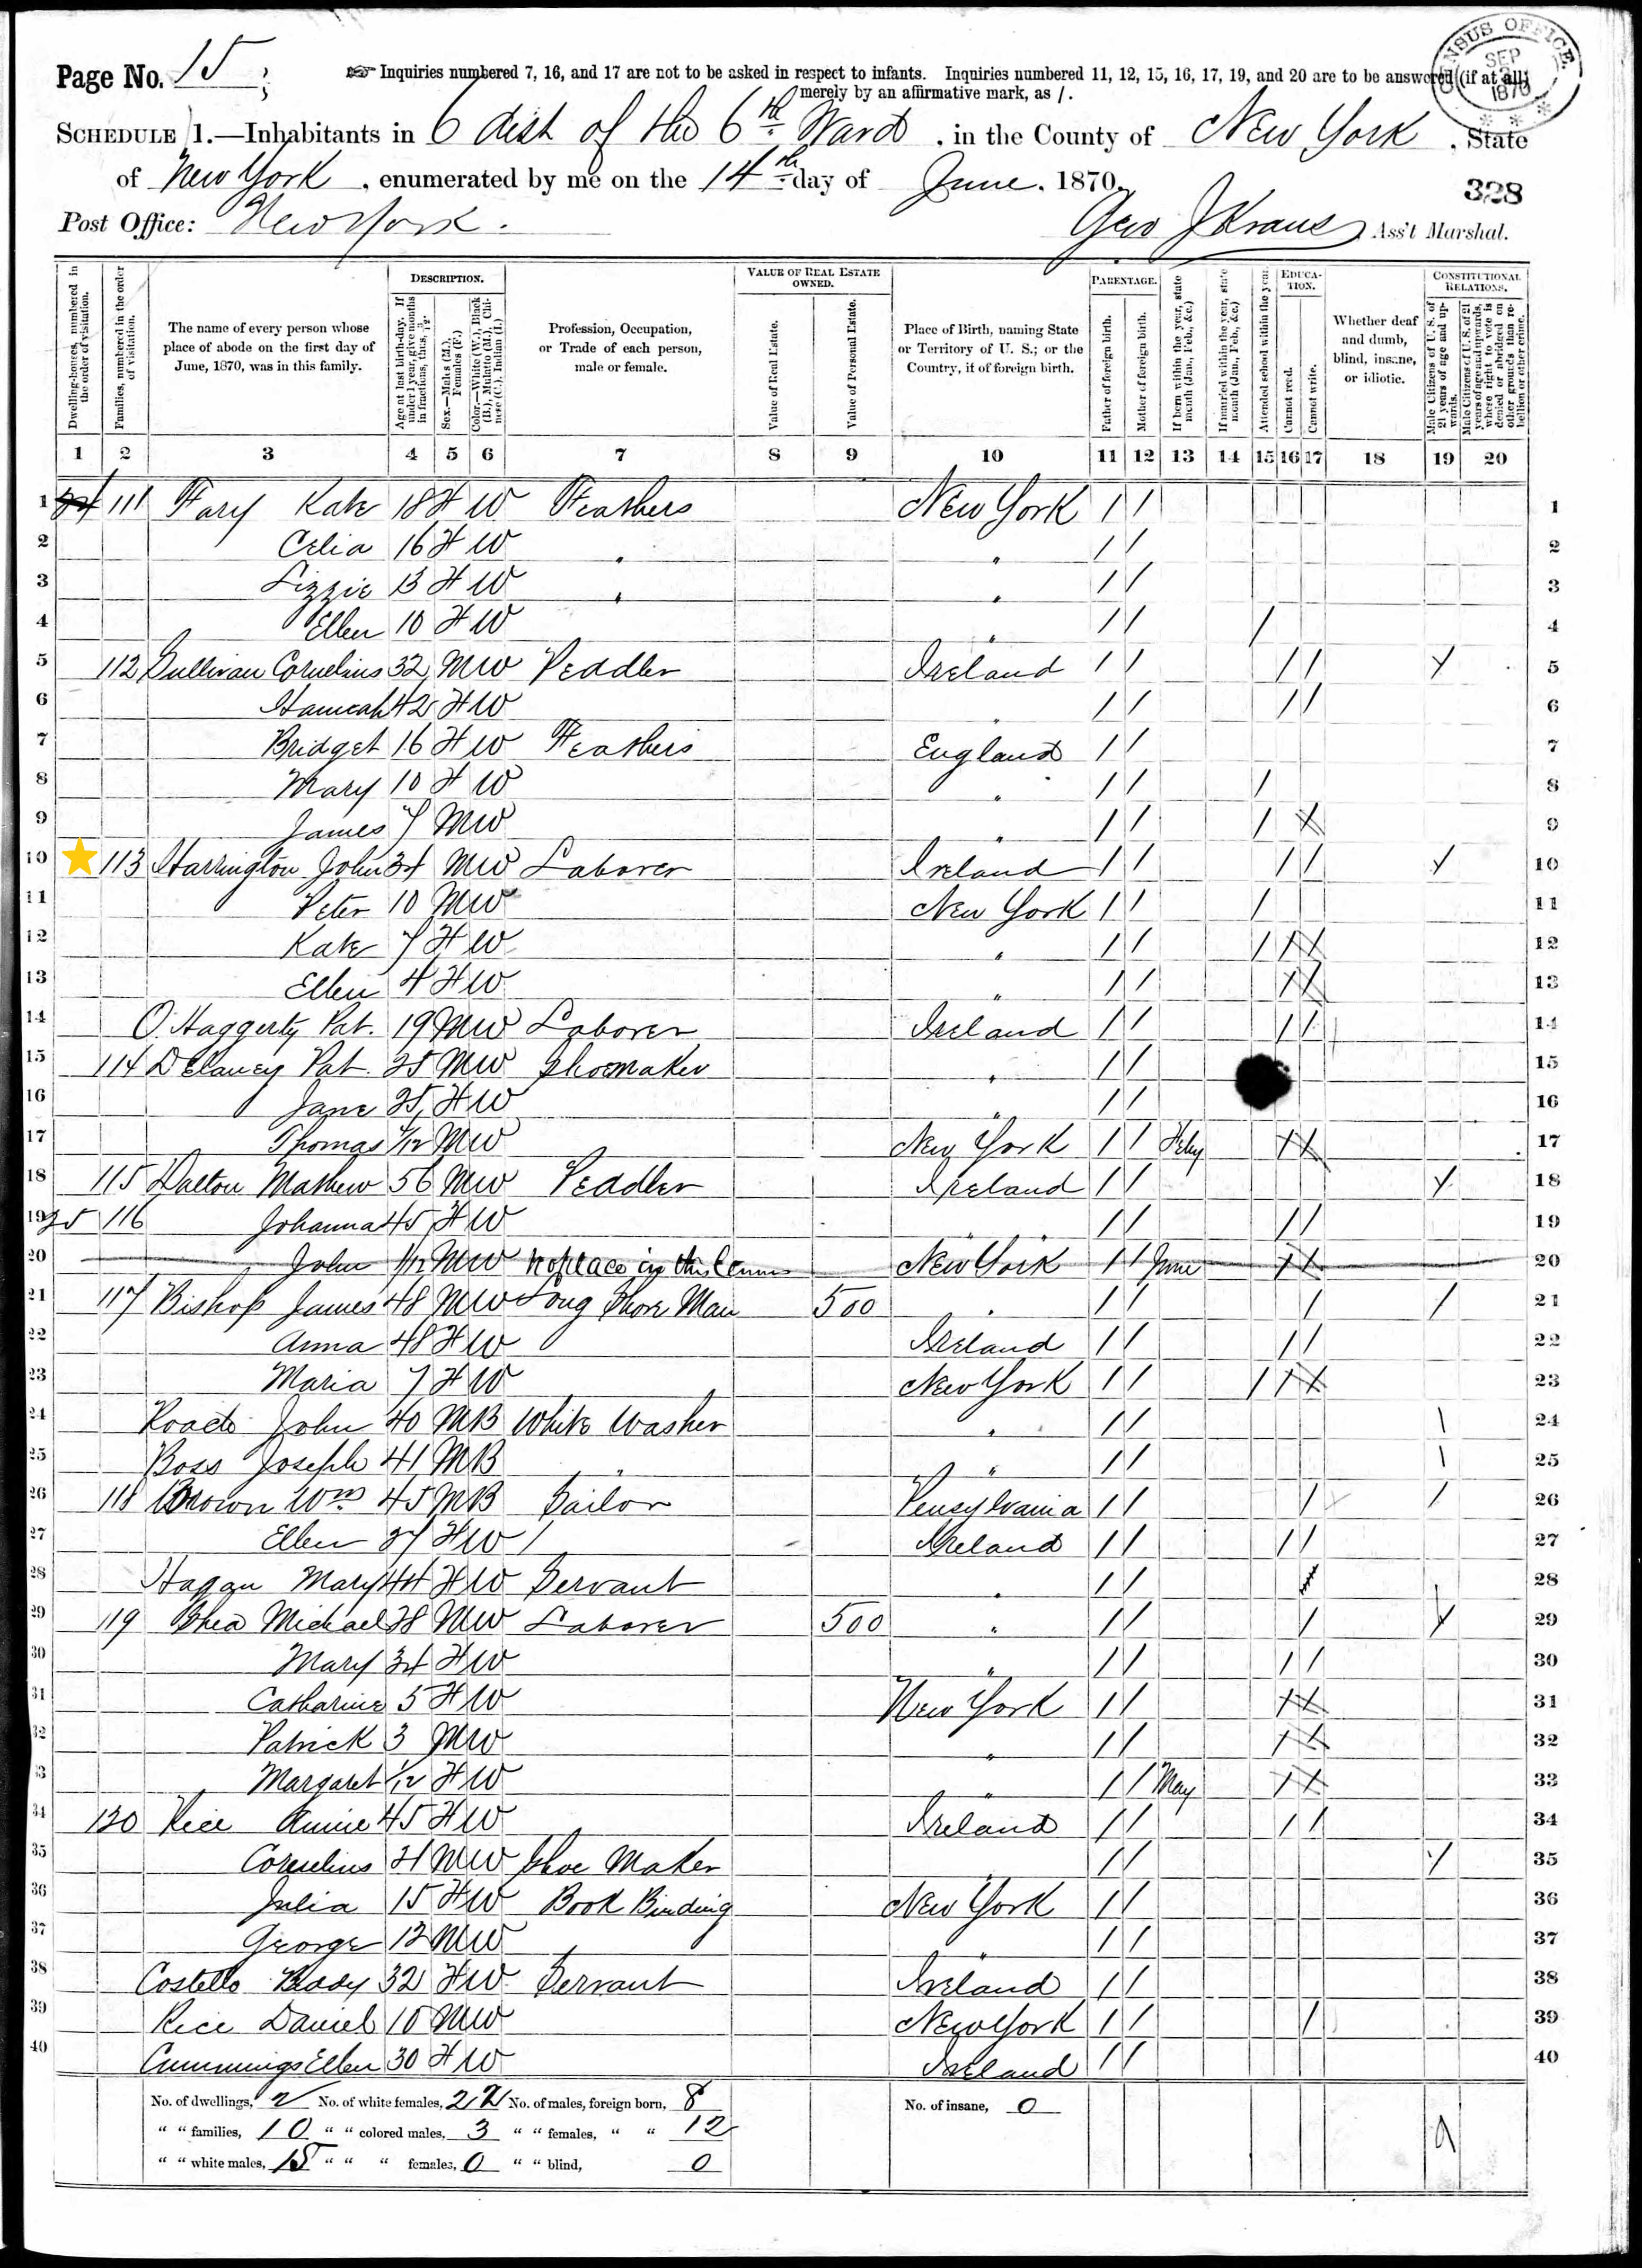 Page No. 15
Inquiries numbered 7, 16, and 17 are not to be asked in respect to infants. Inquiries numbered 11, 12, 15, 16, 17, 19, and 20 are to be answered (if at all)
merely by an affirmative mark, as /.
CENSUS OFFICE SEP 1870
SCHEDULE 1.—Inhabitants in 6 dist of the 6th Ward, in the County of New York, State
of New York, enumerated by me on the 14th day of June, 1870.
328
Post Office: New York.
Geo J Kraus, Ass't Marshal.
DESCRIPTION.
VALUE OF REAL ESTATE OWNED.
PARENTAGE.
EDUCATION.
CONSTITUTIONAL RELATIONS.
Dwelling-houses, numbered in the order of visitation.
Families, numbered in the order of visitation.
The name of every person whose place of abode on the first day of June, 1870, was in this family.
Age at last birth-day. If under 1 year, give months in fractions, thus, 3/12.
Sex.—Males (M.), Females (F.)
Color.—White (W.), Black (B.), Mulatto (M.), Chinese (C.), Indian (I.)
Profession, Occupation, or Trade of each person, male or female.
Value of Real Estate.
Value of Personal Estate.
Place of Birth, naming State or Territory of U. S.; or the Country, if of foreign birth.
Father of foreign birth.
Mother of foreign birth.
If born within the year, state month (Jan., Feb., &c.)
If married within the year, state month (Jan., Feb., &c.)
Attended school within the year.
Cannot read.
Cannot write.
Whether deaf and dumb, blind, insane, or idiotic.
Male Citizens of U. S. of 21 years of age and upwards.
Male Citizens of U. S. of 21 years of age and upwards, where right to vote is denied or abridged on other grounds than rebellion or other crime.
1 2 3 4 5 6 7 8 9 10 11 12 13 14 15 16 17 18 19 20
1 111 Fary Kate 18 F W Feathers New York / / 1
2 Celia 16 F W " " / / 2
3 Lizzie 13 F W " " / / 3
4 Ellen 10 F W " / / / 4
5 112 Sullivan Cornelius 32 M W Peddler Ireland / / / / 5
6 Hannah 42 F W " / / / / 6
7 Bridget 16 F W Feathers England / / 7
8 Mary 10 F W " / / / 8
9 James 7 M W " / / / 9
10 113 Harrington John 34 M W Laborer Ireland / / / / 10
11 Peter 10 M W New York / / / 11
12 Kate 7 F W " / / / 12
13 Ellen 4 F W " / / 13
14 O.Haggerty Pat. 19 M W Laborer Ireland / / / / 14
15 114 Delaney Pat. 25 M W Shoemaker " / / 15
16 Jane 25 F W " / / 16
17 Thomas /12 M W New York / / Feby 17
18 115 Dalton Mathew 56 M W Peddler Ireland / / 18
19 25 116 Johanna 45 F W " / / / / 19
20 John 1/12 M W No place in this Census New York / / June 20
21 117 Bishop James 48 M W Long Shore Man 500 " / / / / 21
22 Anna 48 F W Ireland / / / / 22
23 Maria 7 F W New York / / / 23
24 John 40 M B White Washer " / / / 24
25 Boss Joseph 41 M B " " / / / 25
26 118 Brown Wm 45 M B Sailor Pensylvania / / / / 26
27 Ellen 27 F W / Ireland / / / / 27
28 Hagan Mary 44 F W Servant " / / / 28
29 119 Shea Michael 28 M W Laborer 500 " / / / 29
30 Mary 34 F W " / / / / 30
31 Catharine 5 F W New York / / 31
32 Patrick 3 M W " / / 32
33 Margaret 1/12 F W " / / May 33
34 120 Rice Annie 45 F W Ireland / / / / 34
35 Cornelius 21 M W Shoe Maker " / / 35
36 Julia 15 F W Book Binding New York / / 36
37 George 12 M W " / / 37
38 Costello 32 F W Servant Ireland / / 38
39 Rice Daniel 10 M W New York / / / 39
40 Cummings Ellen 30 F W Ireland / / 40
No. of dwellings, 2 No. of white females, 22 No. of males, foreign born, 8 No. of insane, 0
" " families, 10 " " colored males, 3 " " females, " " 12 9
" " white males, 15 " " " females, 0 " " blind, 0